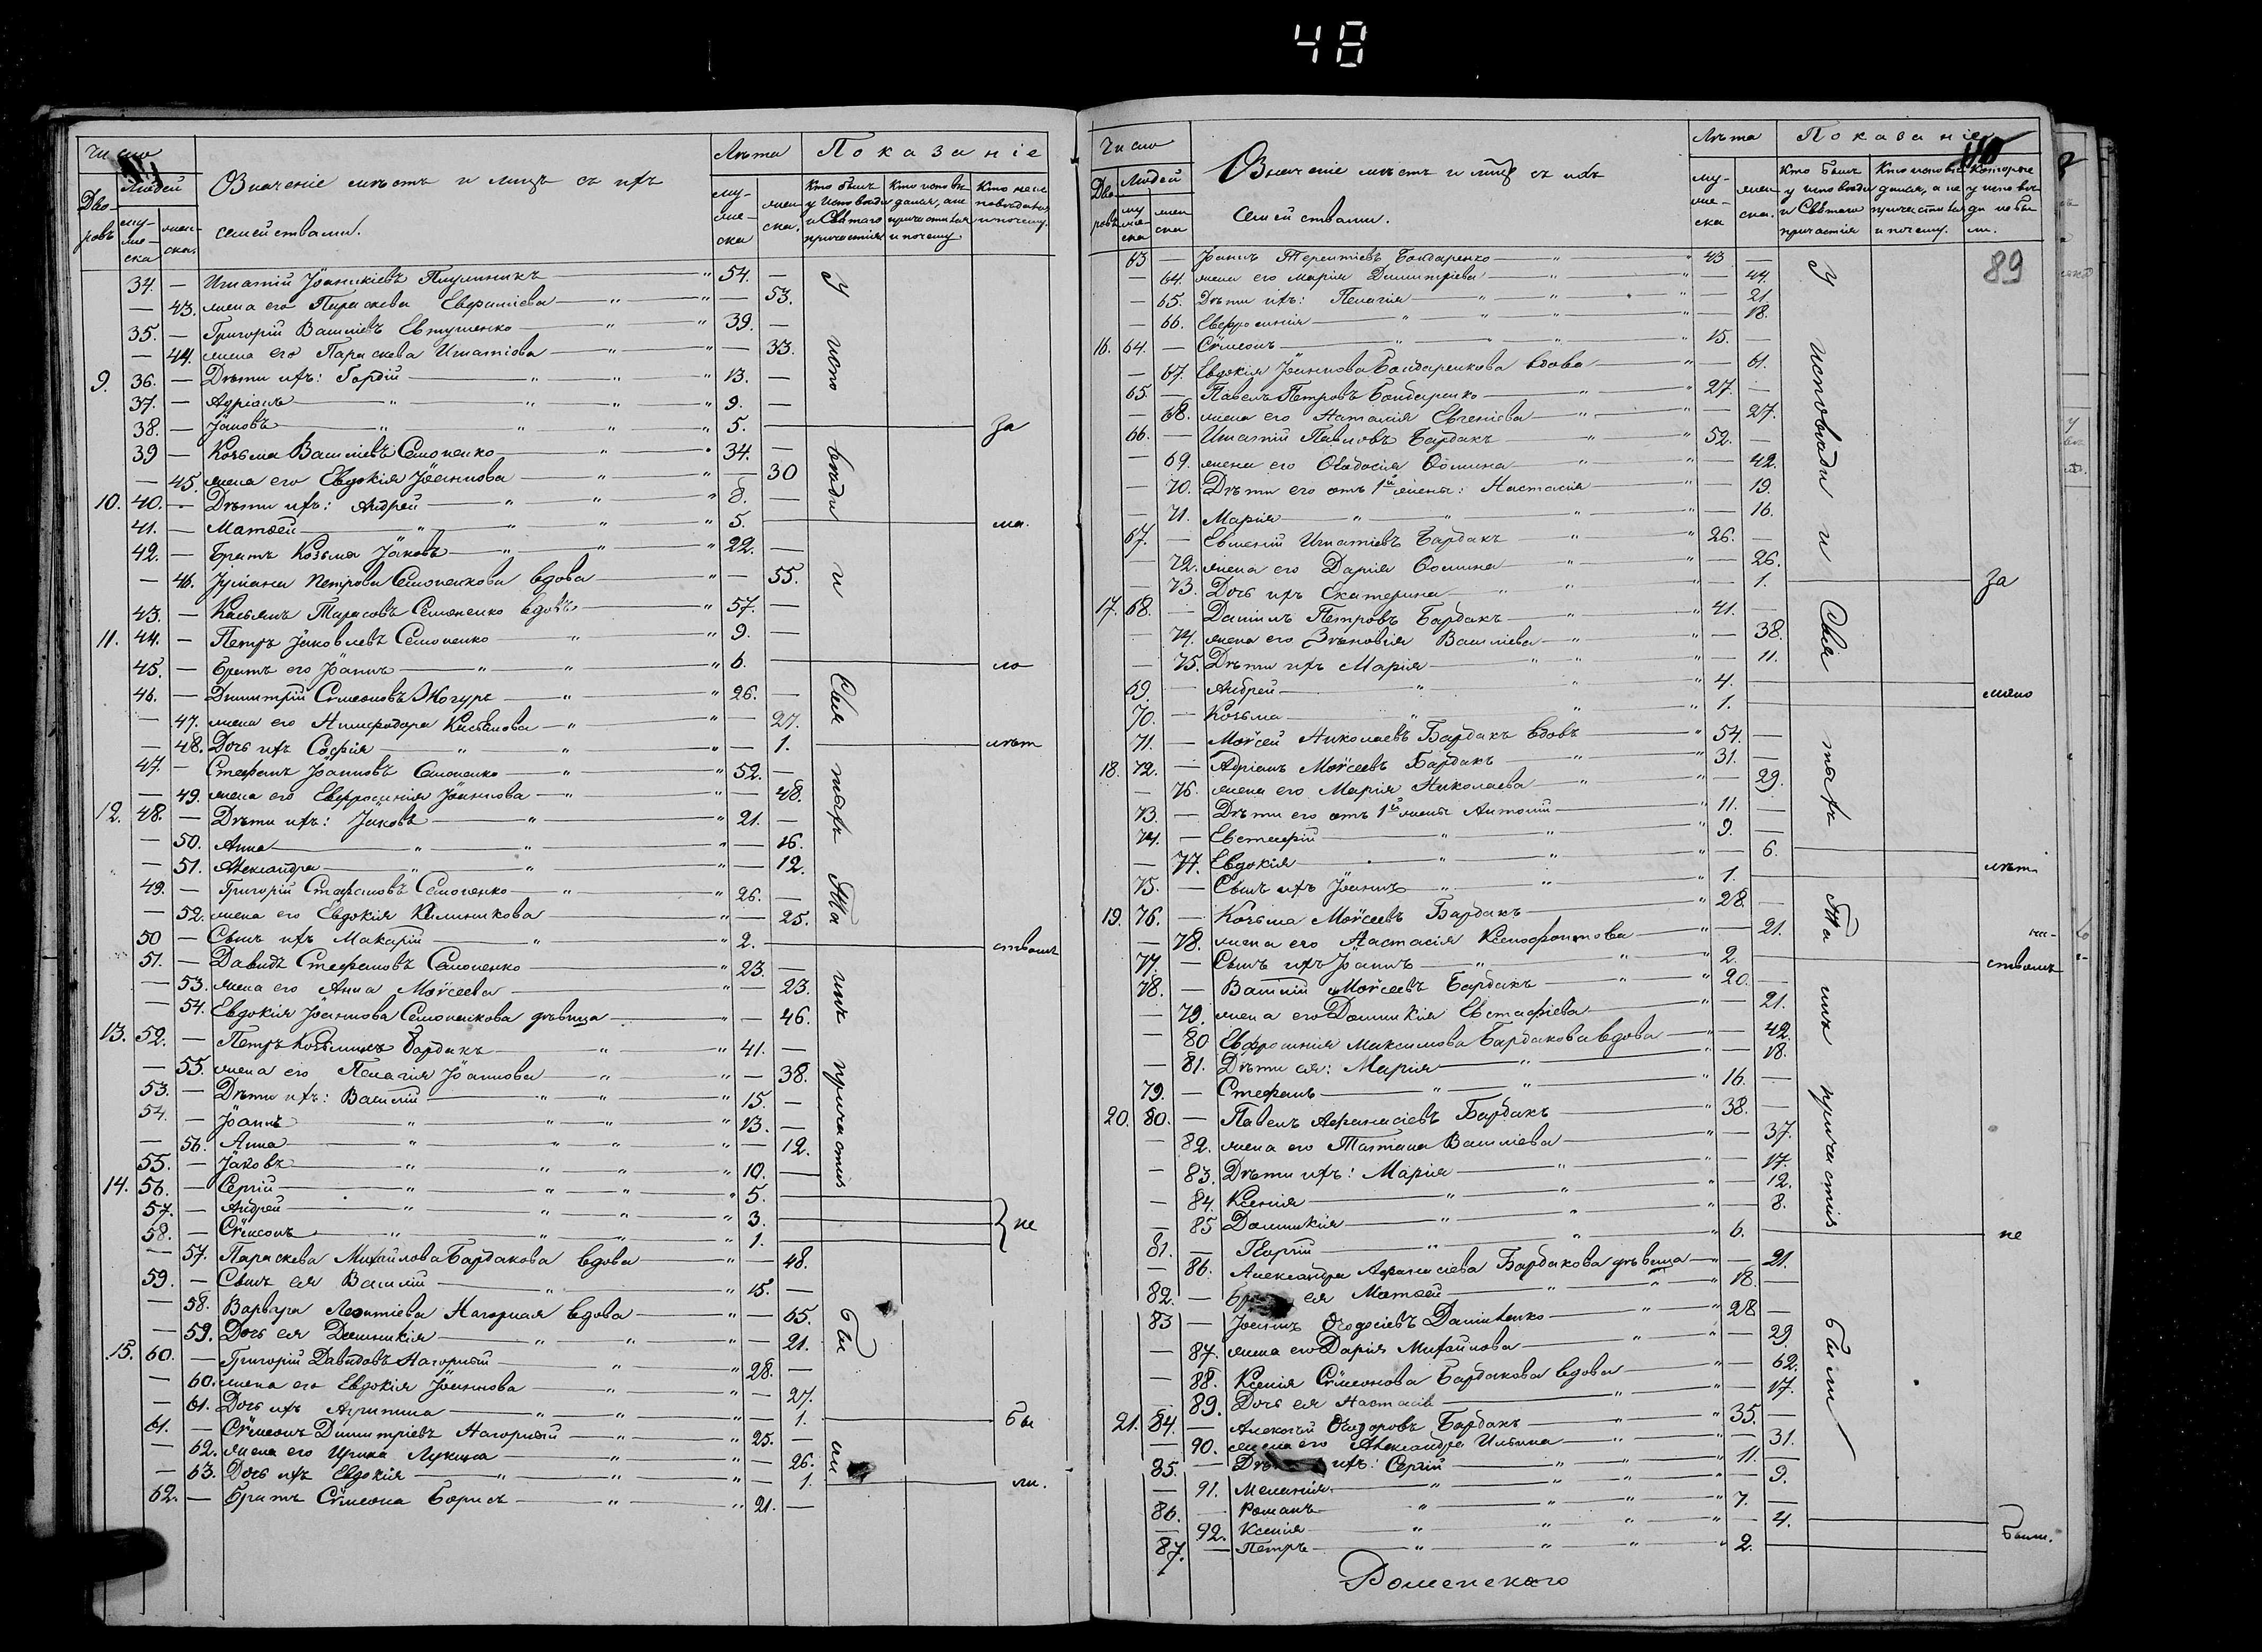 48
Число
Людей
Дво-
ровъ
му-
же-
ска
жен-
ска.
Означеніе мѣстъ и лицъ съ ихъ
семействами.
Лѣта
му-
же-
ска
жен-
ска.
Показаніе
Кто былъ у исповѣди и Святаго причастія
Кто исповѣдался, а не причастился и почему.
Кто не исповѣдался и почему.
34. — Игнатій Іоанникіевъ — " 54. —
— 43. жена его Параскева — " — " — 53.
35. — Григорій Василіевъ Евтушенко — " — " 39. —
— 44. жена его Параскева Игнатіова — " — " — 33.
9. 36. — Дѣти ихъ: Гордій — " — " — " 13. —
37. — Адріанъ — " — " — " — " 9. —
38. — Іаковъ — " — " — " — " 5. — за
39 — Козьма Василіевъ Семоненко — " — " 34. —
— 45. жена его Евдокія Іоаннова — " — " — 30
10. 40. — Дѣти ихъ: Андрей — " — " — " 8. —
41. — Матѳей — " — " — " — " 5. — ма.
42. — Братъ Козьма Іаковъ — " — " — " 22. —
— 46. Іуліана Петрова Семоненкова вдова — " — 55.
43. — Касьянъ Тарасовъ Семоненко вдовъ — " 57. —
11. 44. — Петръ Іаковлевъ Семоненко — " — " 9. —
45. — Братъ его Іоаннъ — " — " — " 6. — ло
46. — Димитрій Сѵмеоновъ — " — " 26. —
— 47. жена его Касьянова — " — " — 27.
— 48. Дочь ихъ Софія — " — " — " — 1. — лѣт
47. — Стефанъ Іоанновъ Семоненко — " — " 52. —
— 49. жена его Евфросинія Іоаннова — " — " — 48.
12. 48. — Дѣти ихъ: Іаковъ — " — " 21. —
— 50. Анна — " — " — " — 16.
— 51. Александра — " — " — " — 12.
49. — Григорій Стефановъ Семоненко — " — " 26. —
— 52. жена его Евдокія — " — 25.
50 — Сынъ ихъ Макарій — " — " 2. — ствомъ
51. — Давидъ Стефановъ Семоненко — " 23. —
— 53. жена его Анна Моѵсеева — " — 23.
— 54. Евдокія Іоаннова Семоненкова дѣвица — " — 46.
13. 52. — Петръ Козьминъ Бардакъ — " — " 41. —
— 55. жена его Пелагія Іоаннова — " — " — 38.
53. — Дѣти ихъ: Василій — " — " — " 15. —
54. — Іоаннъ — " — " — " — " 13. —
— 56. Анна — " — " — " — " — 12.
55. — Іаковъ — " — " — " — " 10. —
14. 56. — Сергій — " — " — " — " 5. —
57. — Андрей — " — " — " — " 3. — не
58. — Сѵмеонъ — " — " — " — " 1. —
— 57. Параскева Михайлова Бардакова вдова — " — 48.
59. — Сынъ ея Василій — " — " 15. —
— 58. Варвара Леонтіева Нагорная вдова — " — 65.
— 59. Дочь ея Домникія — " — " — " — 21.
15. 60. — Григорій Давидовъ Нагорный — " — " 28. —
— 60. жена его Евдокія Іоаннова — " — " — 27.
— 61. Дочь ихъ Агрипина — " — " — " — 1. — бы
61. — Сѵмеонъ Димитріевъ Нагорный — " — " 25. —
— 62. жена его Ирина Лукина — " — " — 26.
— 63. Дочь ихъ Евдокія — " — " — " — 1. — ли.
62. — Братъ Сѵмеона Борисъ — " — " 21. —
У испо вѣди и Свя тыхъ Та инъ причастія бы ли
Число
Людей
Дво-
ровъ
му-
же-
ска
жен-
ска
Означеніе мѣстъ и лицъ съ ихъ
семействами.
Лѣта
му-
же-
ска
жен-
ска.
Показаніе
Кто былъ у исповѣди и Святаго причастія
Кто исповѣдался, а не причастился и почему.
Которые у исповѣди не бы-
ли.
89
63 — Іоаннъ Терентіевъ Бондаренко — " — " 43 —
— 64. жена его Марія Димитріева — " — " — 44.
— 65. Дѣти ихъ: Пелагія — " — " — " — 21.
— 66. Евфросинія — " — " — " — " — 18.
16. 64. — Сѵмеонъ — " — " — " — " 15. —
— 67. Евдокія Іоаннова Бондаренкова вдова — " — 61.
65. — Павелъ Петровъ Бондаренко — " — " 27. —
— 68. жена его Наталія Евгеніева — " — " — 27.
66. — Игнатій Павловъ Бардакъ — " — " 52. —
— 69. жена его Ѳеодосія Ѳомина — " — " — 42.
— 70. Дѣти его отъ 1й жены: Настасія — " — " — 19.
— 71. Марія — " — " — " — " — 16.
67. — Евмений Игнатіевъ Бардакъ — " — " 26. —
— 72. жена его Дарія Ѳомина — " — " — 26.
— 73. Дочь ихъ Екатерина — " — " — " — 1. — за
17. 68. — Даніилъ Петровъ Бардакъ — " — " 41. —
— 74. жена его Зѣновія Василіева — " — " — 38.
— 75. Дѣти ихъ Марія — " — " — " — 11.
69. — Андрей — " — " — " 4. — мало
70. — Козьма — " — " — " 1. —
71. — Моѵсей Николаевъ Бардакъ вдовъ — " 54. —
18. 72. — Адріанъ Моѵсеевъ Бардакъ — " — " 31. —
— 76. жена его Марія Николаева — " — " — 29.
73. — Дѣти его отъ 1й жены Антоній — " 11. —
74. — Евстафій — " — " — " 9. —
— 77. Евдокія — " — " — " — 6. — лѣт
75. — Сынъ ихъ Іоаннъ — " — " — " 1. —
19 76. — Козьма Моѵсеевъ Бардакъ — " 28. —
— 78. жена его Настасія Ксенофонтова — " — 21.
77. — Сынъ ихъ Іоаннъ — " — " — " 2. — ствомъ
78. — Василій Моѵсеевъ Бардакъ — " — " 20. —
— 79. жена его Домникія Евстафіева — " — 21.
— 80 Евфросинія Максимова Бардакова вдова — " — 42.
— 81. Дѣти ея: Марія — " — " — 18.
79. — Стефанъ — " — " — " 16. —
20. 80. — Павелъ Афанасіевъ Бардакъ — " 38. —
— 82. жена его Татіана Василіева — " — 37.
— 83. Дѣти ихъ: Марія — " — " — 17.
— 84. Ксенія — " — " — " — 12.
— 85 Домникія — " — " — " — 8.
81. — Георгій — " — " — " 6. — не
— 86. Александра Афанасіева Бардакова дѣвица — " — 21.
82. — ея Матѳей — " — " — " 18. —
83 — Іоаннъ Ѳеодосіевъ — " — " 28 —
— 87. жена его Дарія Михайлова — " — " — 29.
— 88. Ксенія Сѵмеонова Бардакова вдова — " — 62.
— 89. Дочь ея Настасія — " — " — 17.
21. 84. — Алексій Ѳеодоровъ Бардакъ — " — " 35. —
— 90. жена его Александра Ильина — " — " — 31.
85. — ихъ: Сергій — " — " — " 11. —
— 91. Меланія — " — " — " — " — 9.
86. — Романъ — " — " — " — " 7. —
— 92. Ксенія — " — " — " — " — 4.
87. — Петръ — " — " — " — " 2. — были.
У исповѣди и Свя тыхъ Та инъ причастія были